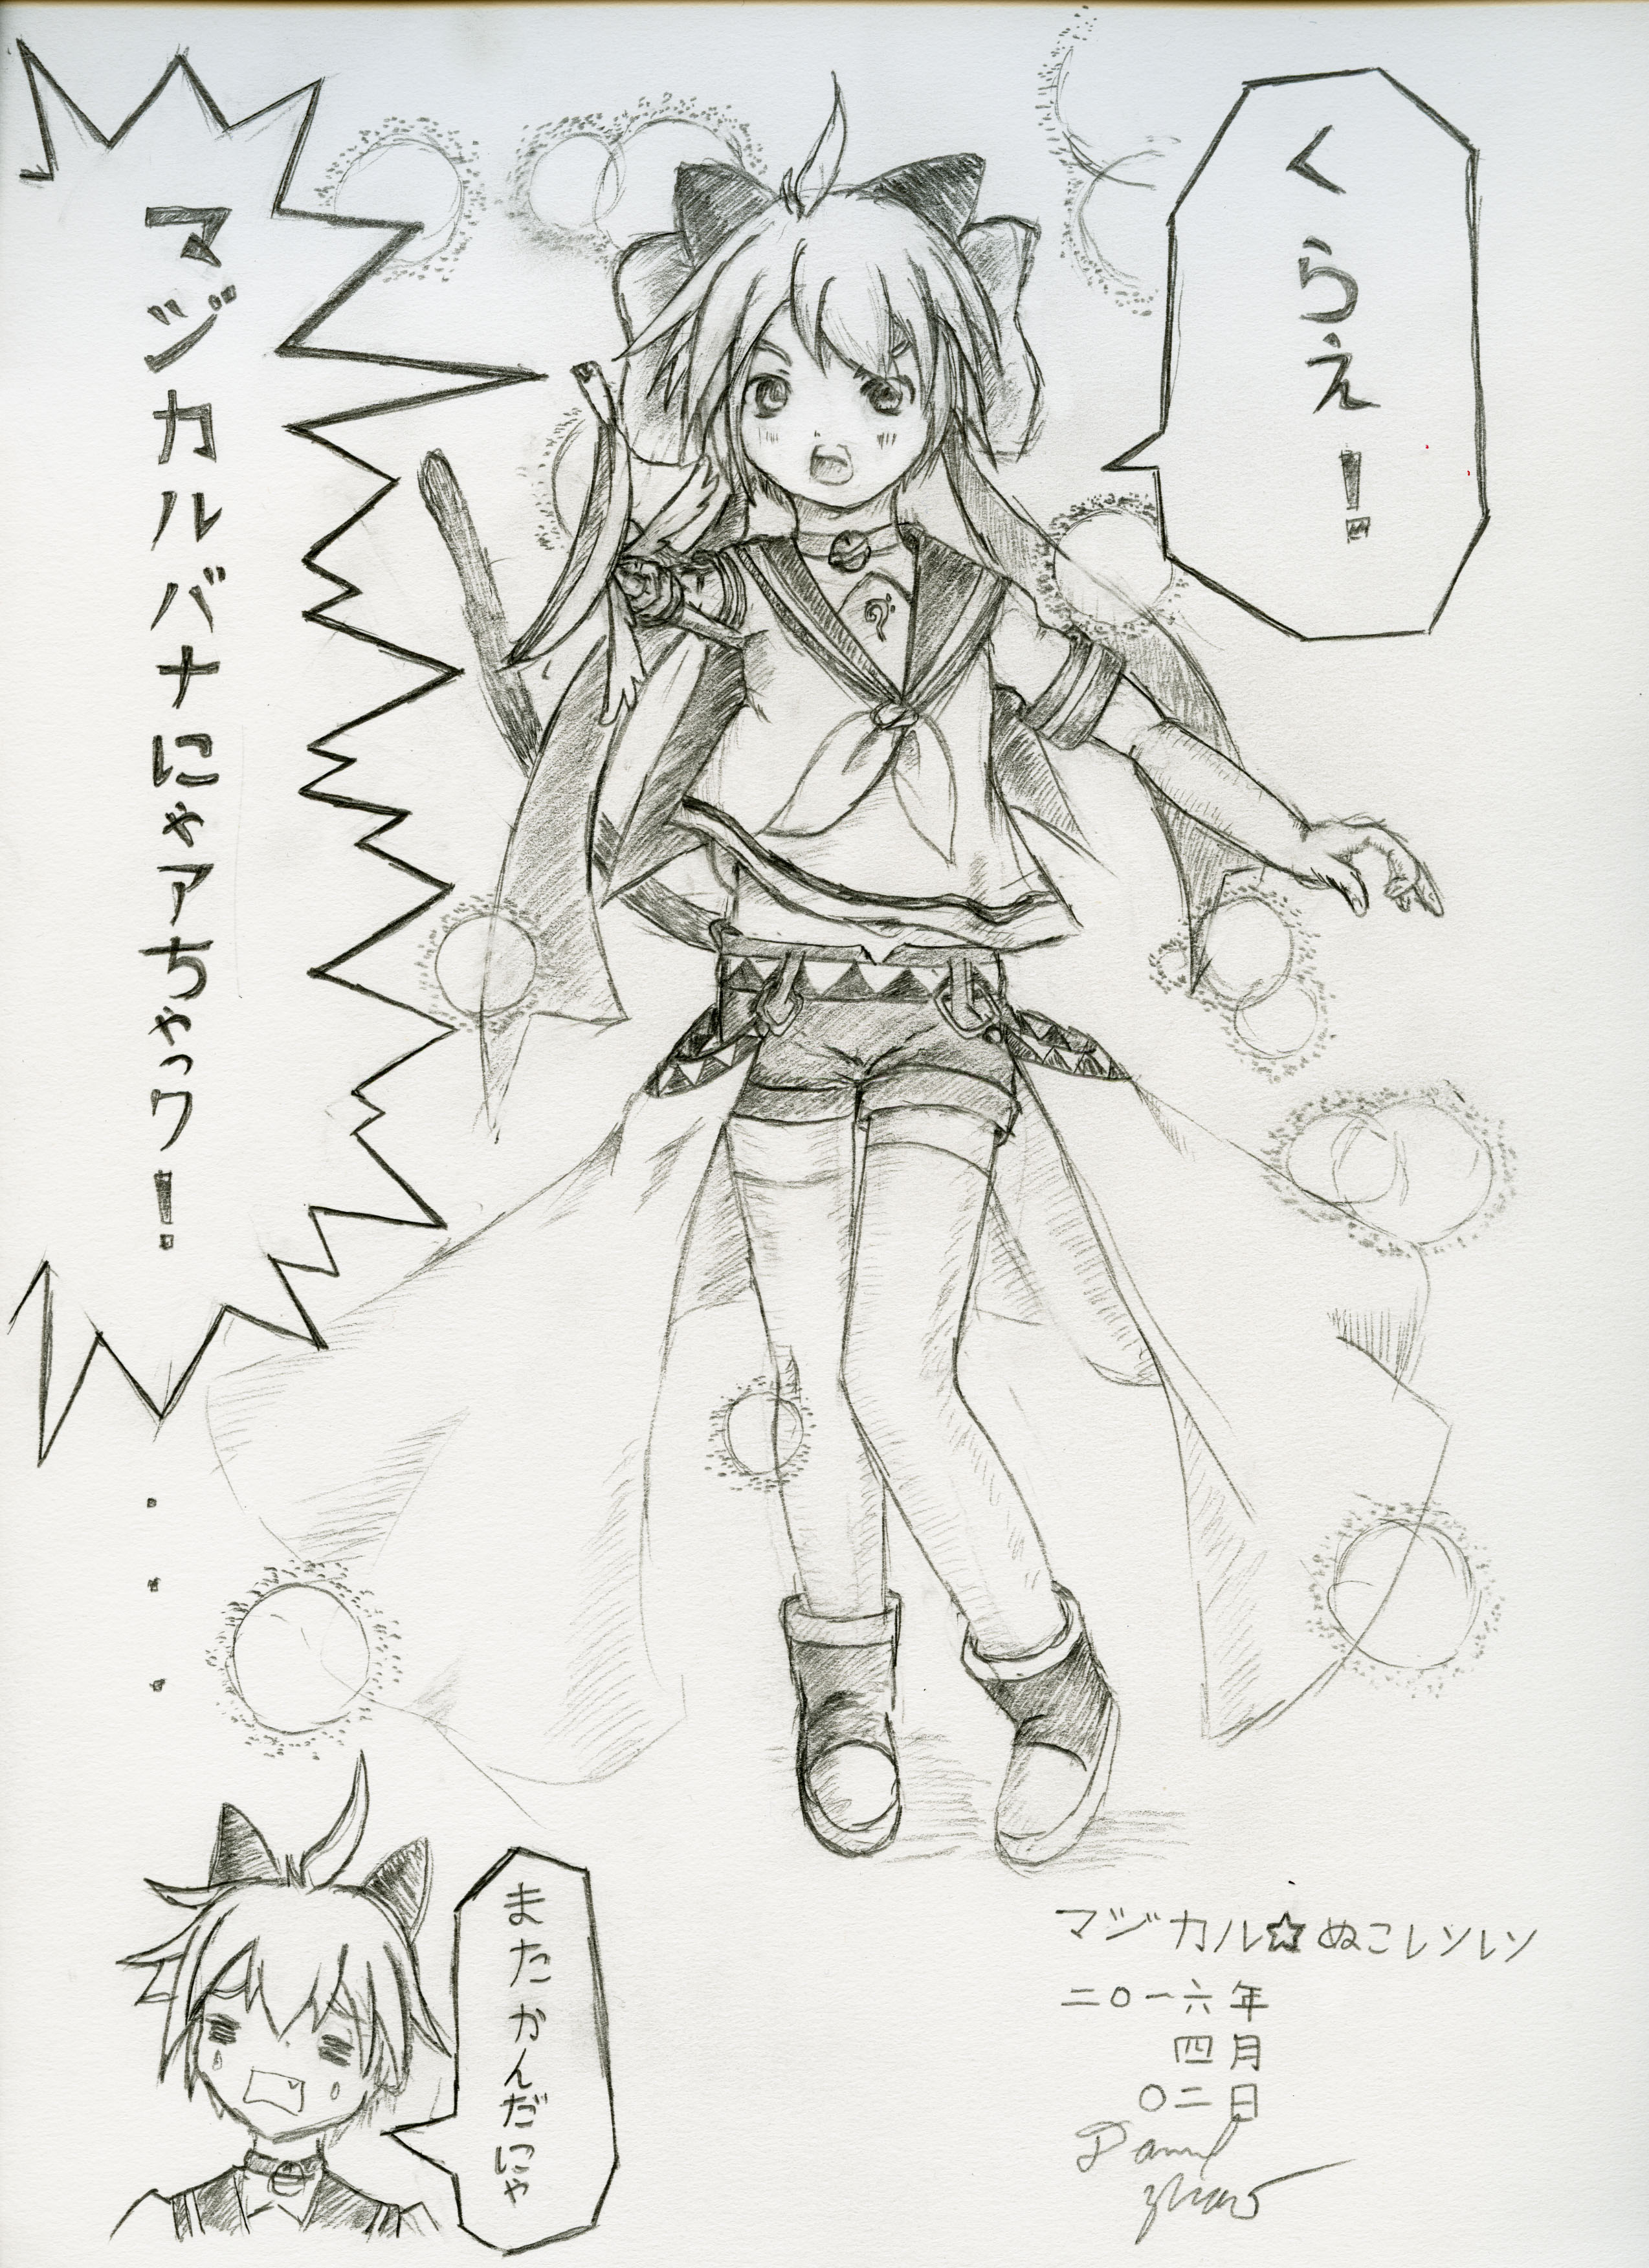 くらえ!
マジカルバナにゃアちゃっク!
...
またかんだにゃ
マジカル☆ぬこレンレン
二〇一六年
四月
〇二日